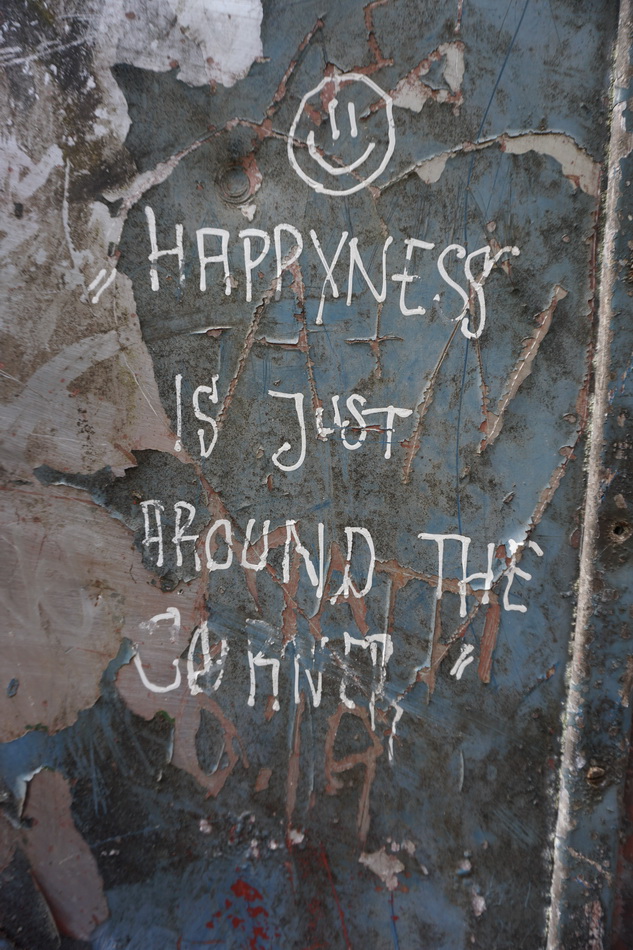 "HAPPYNESS
IS JUST
AROUND THE
CORNER"